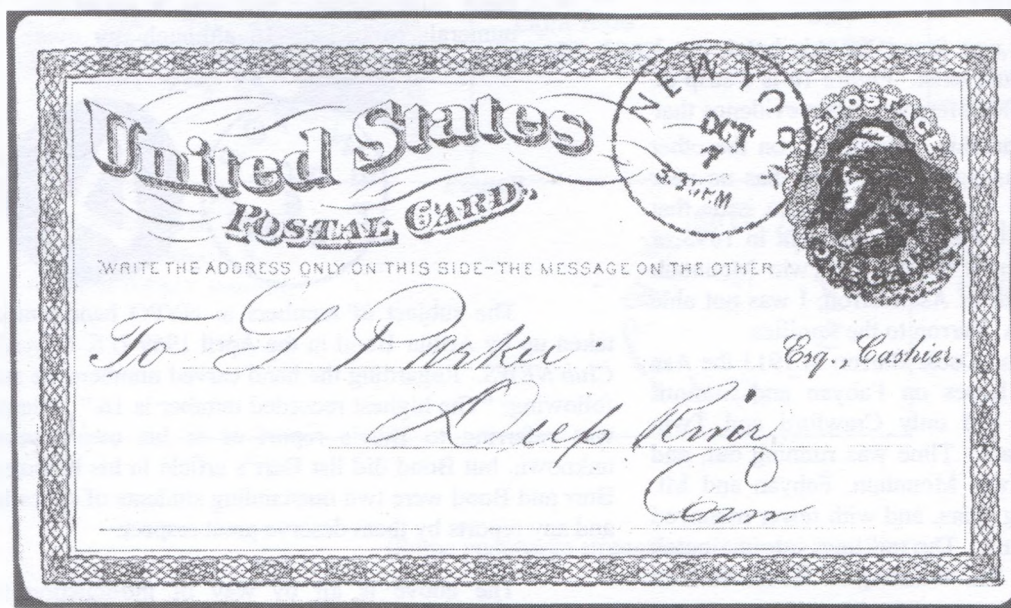 United States
POSTAL CARD.
NEW YO
OCT
7
U.S. POSTAGE
ONE CENT
WRITE THE ADDRESS ONLY ON THIS SIDE-THE MESSAGE ON THE OTHER
To
Parker
Esq. Cashier.
Deep River
Conn